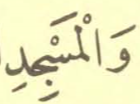 وَالْمَسْجِدِ